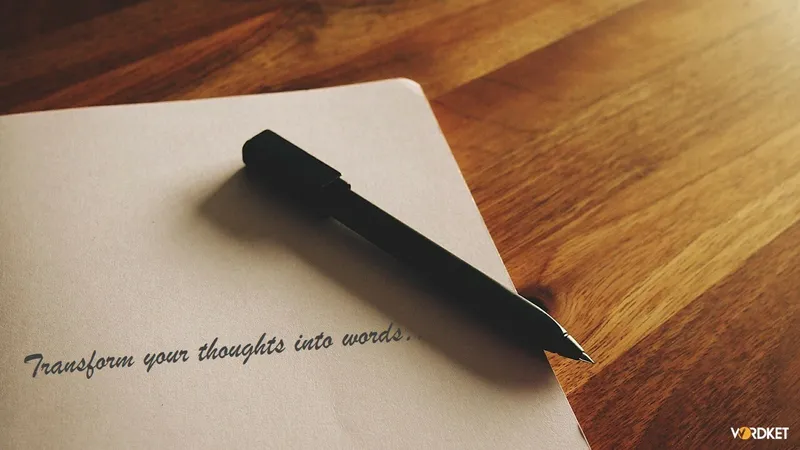 Transform your thoughts into words..
VORDKET